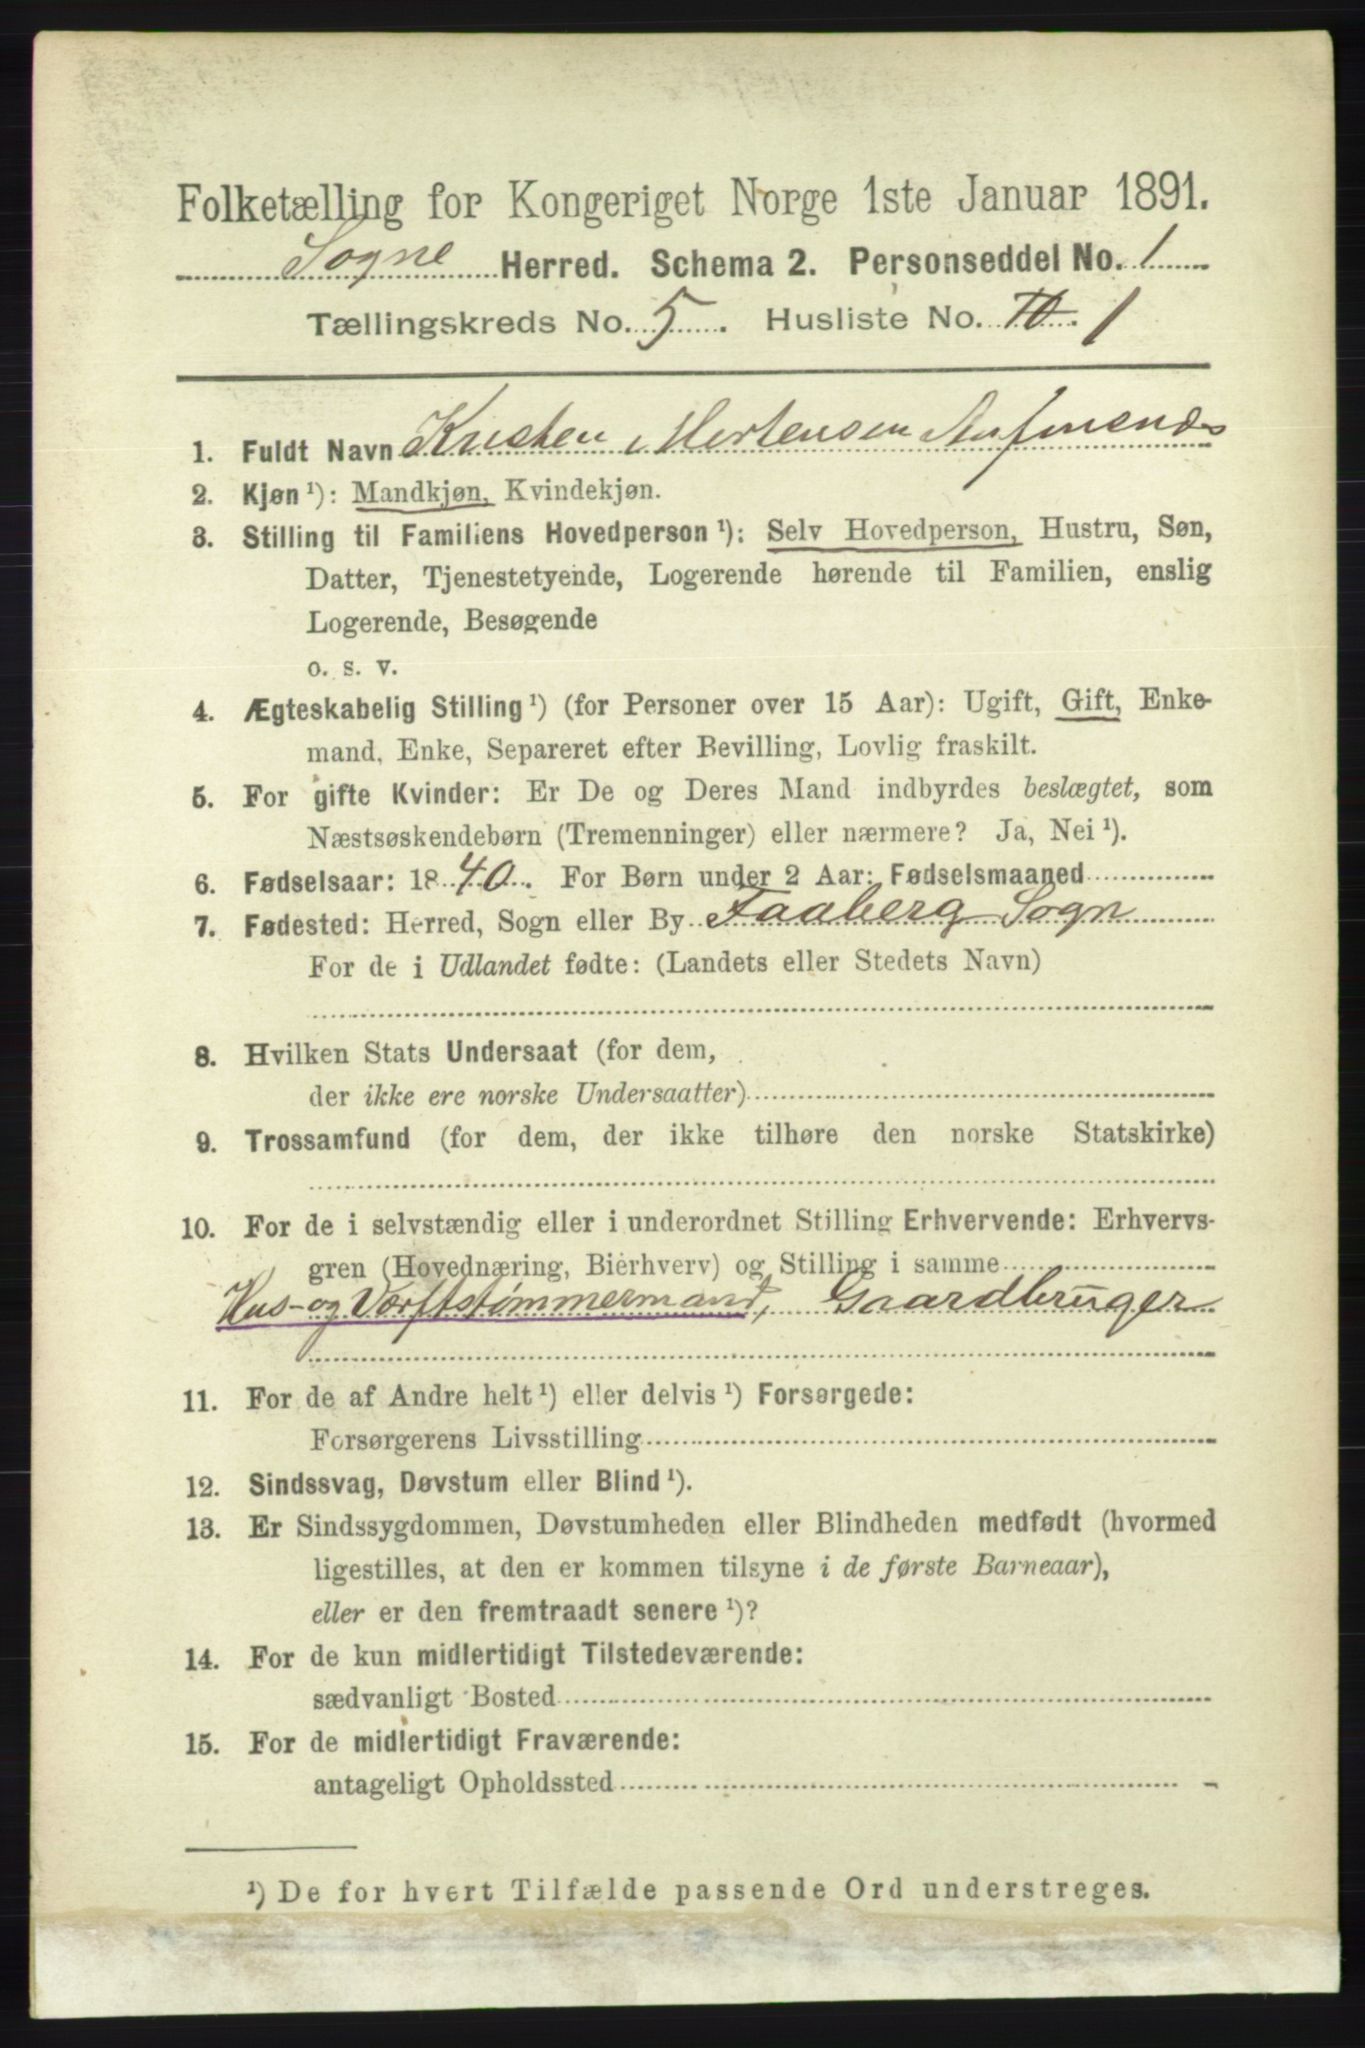 Folketælling for Kongeriget Norge 1ste Januar 1891.
Sogne Herred. Schema 2. Personseddel No. 1
Tællingskreds No. 5. Husliste No. 10. 1
1. Fuldt Navn Kristen Mortensen
2. Kjøn ¹): Mandkjøn, Kvindekjøn.
3. Stilling til Familiens Hovedperson ¹): Selv Hovedperson, Hustru, Søn,
Datter, Tjenestetyende, Logerende hørende til Familien, enslig
Logerende, Besøgende
o. s. v.
4. Ægteskabelig Stilling ¹) (for Personer over 15 Aar): Ugift, Gift, Enke-
mand, Enke, Separeret efter Bevilling, Lovlig fraskilt.
5. For gifte Kvinder: Er De og Deres Mand indbyrdes beslægtet, som
Næstsøskendebørn (Tremenninger) eller nærmere? Ja, Nei ¹).
6. Fødselsaar: 1840. For Børn under 2 Aar: Fødselsmaaned
7. Fødested: Herred, Sogn eller By Faaberg Sogn
For de i Udlandet fødte: (Landets eller Stedets Navn)
8. Hvilken Stats Undersaat (for dem,
der ikke ere norske Undersaatter)
9. Trossamfund (for dem, der ikke tilhøre den norske Statskirke)
10. For de i selvstændig eller i underordnet Stilling Erhvervende: Erhvervs-
gren (Hovednæring, Bierhverv) og Stilling i samme
Hus- og Værftstømmermand, Gaardbruger
11. For de af Andre helt ¹) eller delvis ¹) Forsørgede:
Forsørgerens Livsstilling
12. Sindssvag, Døvstum eller Blind ¹).
13. Er Sindssygdommen, Døvstumheden eller Blindheden medfødt (hvormed
ligestilles, at den er kommen tilsyne i de første Barneaar),
eller er den fremtraadt senere ¹)?
14. For de kun midlertidigt Tilstedeværende:
sædvanligt Bosted
15. For de midlertidigt Fraværende:
antageligt Opholdssted
¹) De for hvert Tilfælde passende Ord understreges.